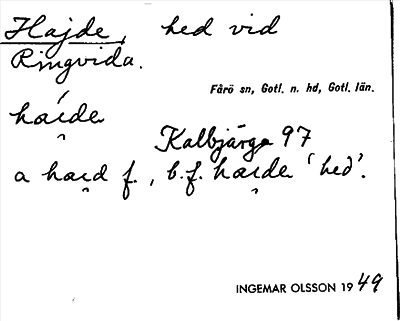 Hajde, hed vid
Ringvida.
Fårö sn, Gotl. n. hd, Gotl. län.
háɪ̯de
Kalbjärga 97
a haɪ̯d f., b.f. haɪ̯de 'hed'.
INGEMAR OLSSON 1949